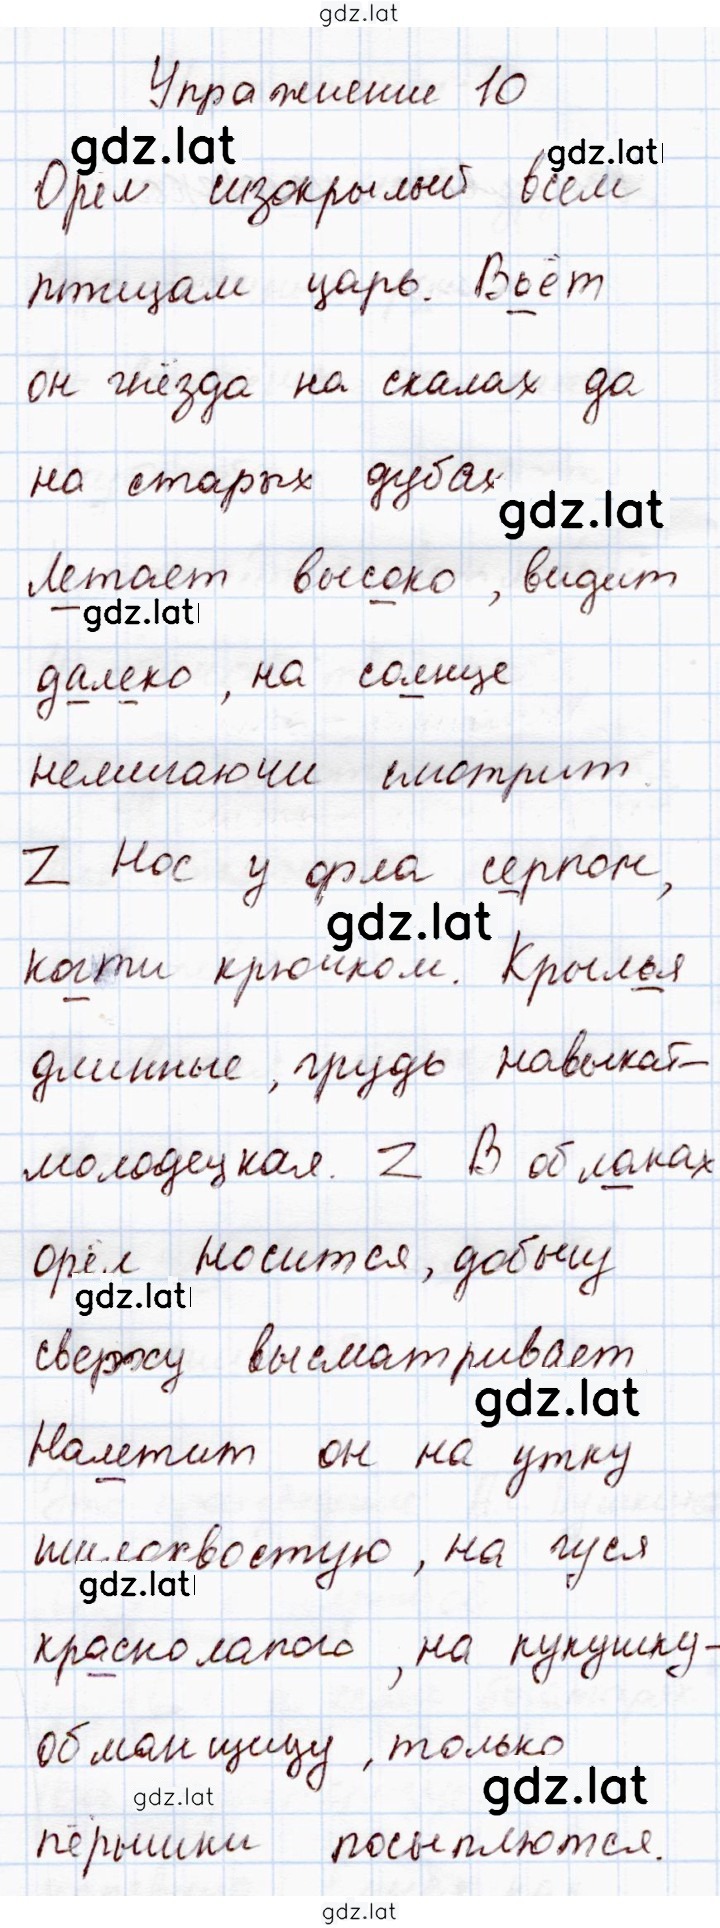 gdz.lat
Упражнение 10
gdz.lat gdz.lat
Орёл сизокрылый всем
птицам царь. Вьёт
он гнёзда на скалах да
на старых дубах
gdz.lat
Летает высоко, видит
gdz.lat
далеко, на солнце
немигаючи смотрит.
Z Нос у орла серпом,
gdz.lat
когти крючком. Крылья
длинные, грудь навыкат-
молодецкая. Z В облаках
орёл носится, добычу
gdz.lat
сверху высматривает
gdz.lat
Налетит он на утку
шилохвостую, на гуся
gdz.lat
красно лапого, на кукушку-
обманщицу, только
gdz.lat gdz.lat
пёрышки посыплются.
gdz.lat